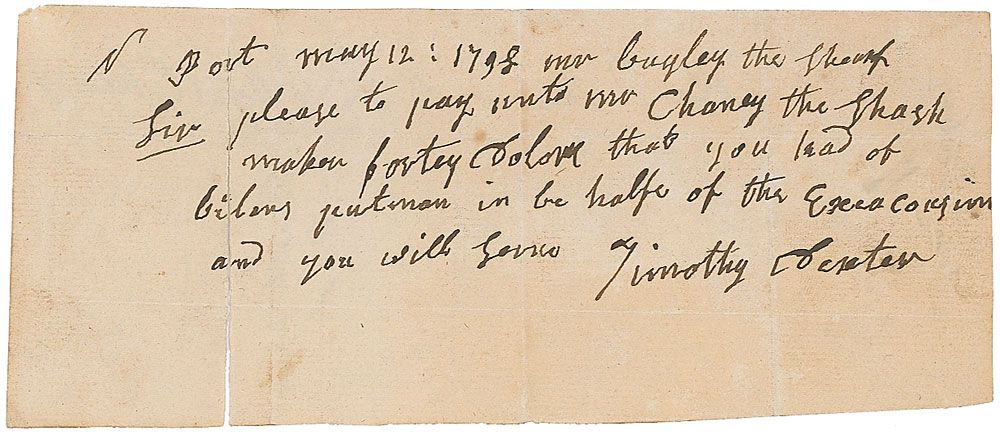 N Port may 12: 1798 mr bagley the Sheaf
Sir please to pay unto mr Chaney the Shash
maker fortey Dolors that you had of
bilens putman in be halfe of the Exeacorsion
and you will Serve Timothy Dexter